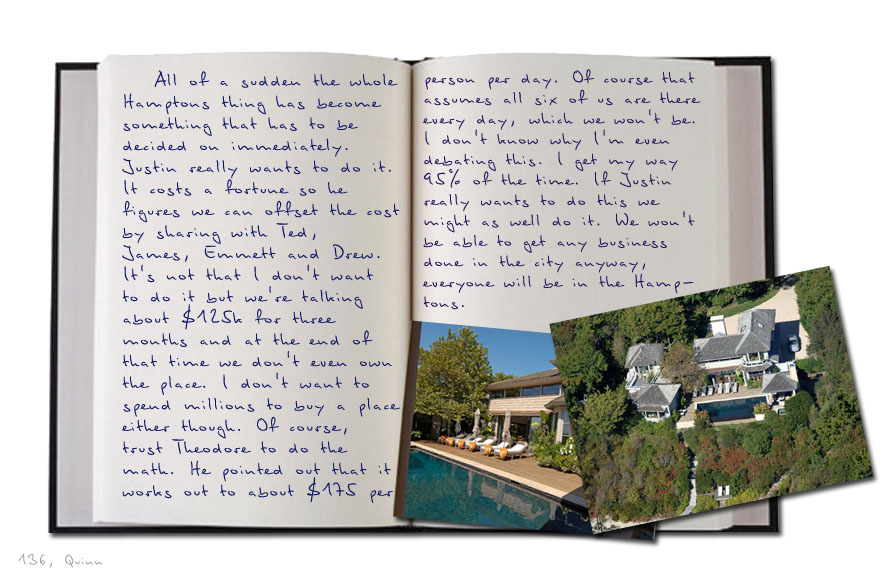 All of a sudden the whole
Hamptons thing has become
something that has to be
decided on immediately.
Justin really wants to do it.
It costs a fortune so he
figures we can offset the cost
by sharing with Ted,
James, Emmett and Drew.
It's not that I don't want
to do it but we're talking
about $125k for three
months and at the end of
that time we don't even own
the place. I don't want to
spend millions to buy a place
either though. Of course,
trust Theodore to do the
math. He pointed out that it
works out to about $175 per
person per day. Of course that
assumes all six of us are there
every day, which we won't be.
I don't know why I'm even
debating this. I get my way
95% of the time. If Justin
really wants to do this we
might as well do it. We won't
be able to get any business
done in the city anyway,
everyone will be in the Hamp-
tons.
136, Quinn